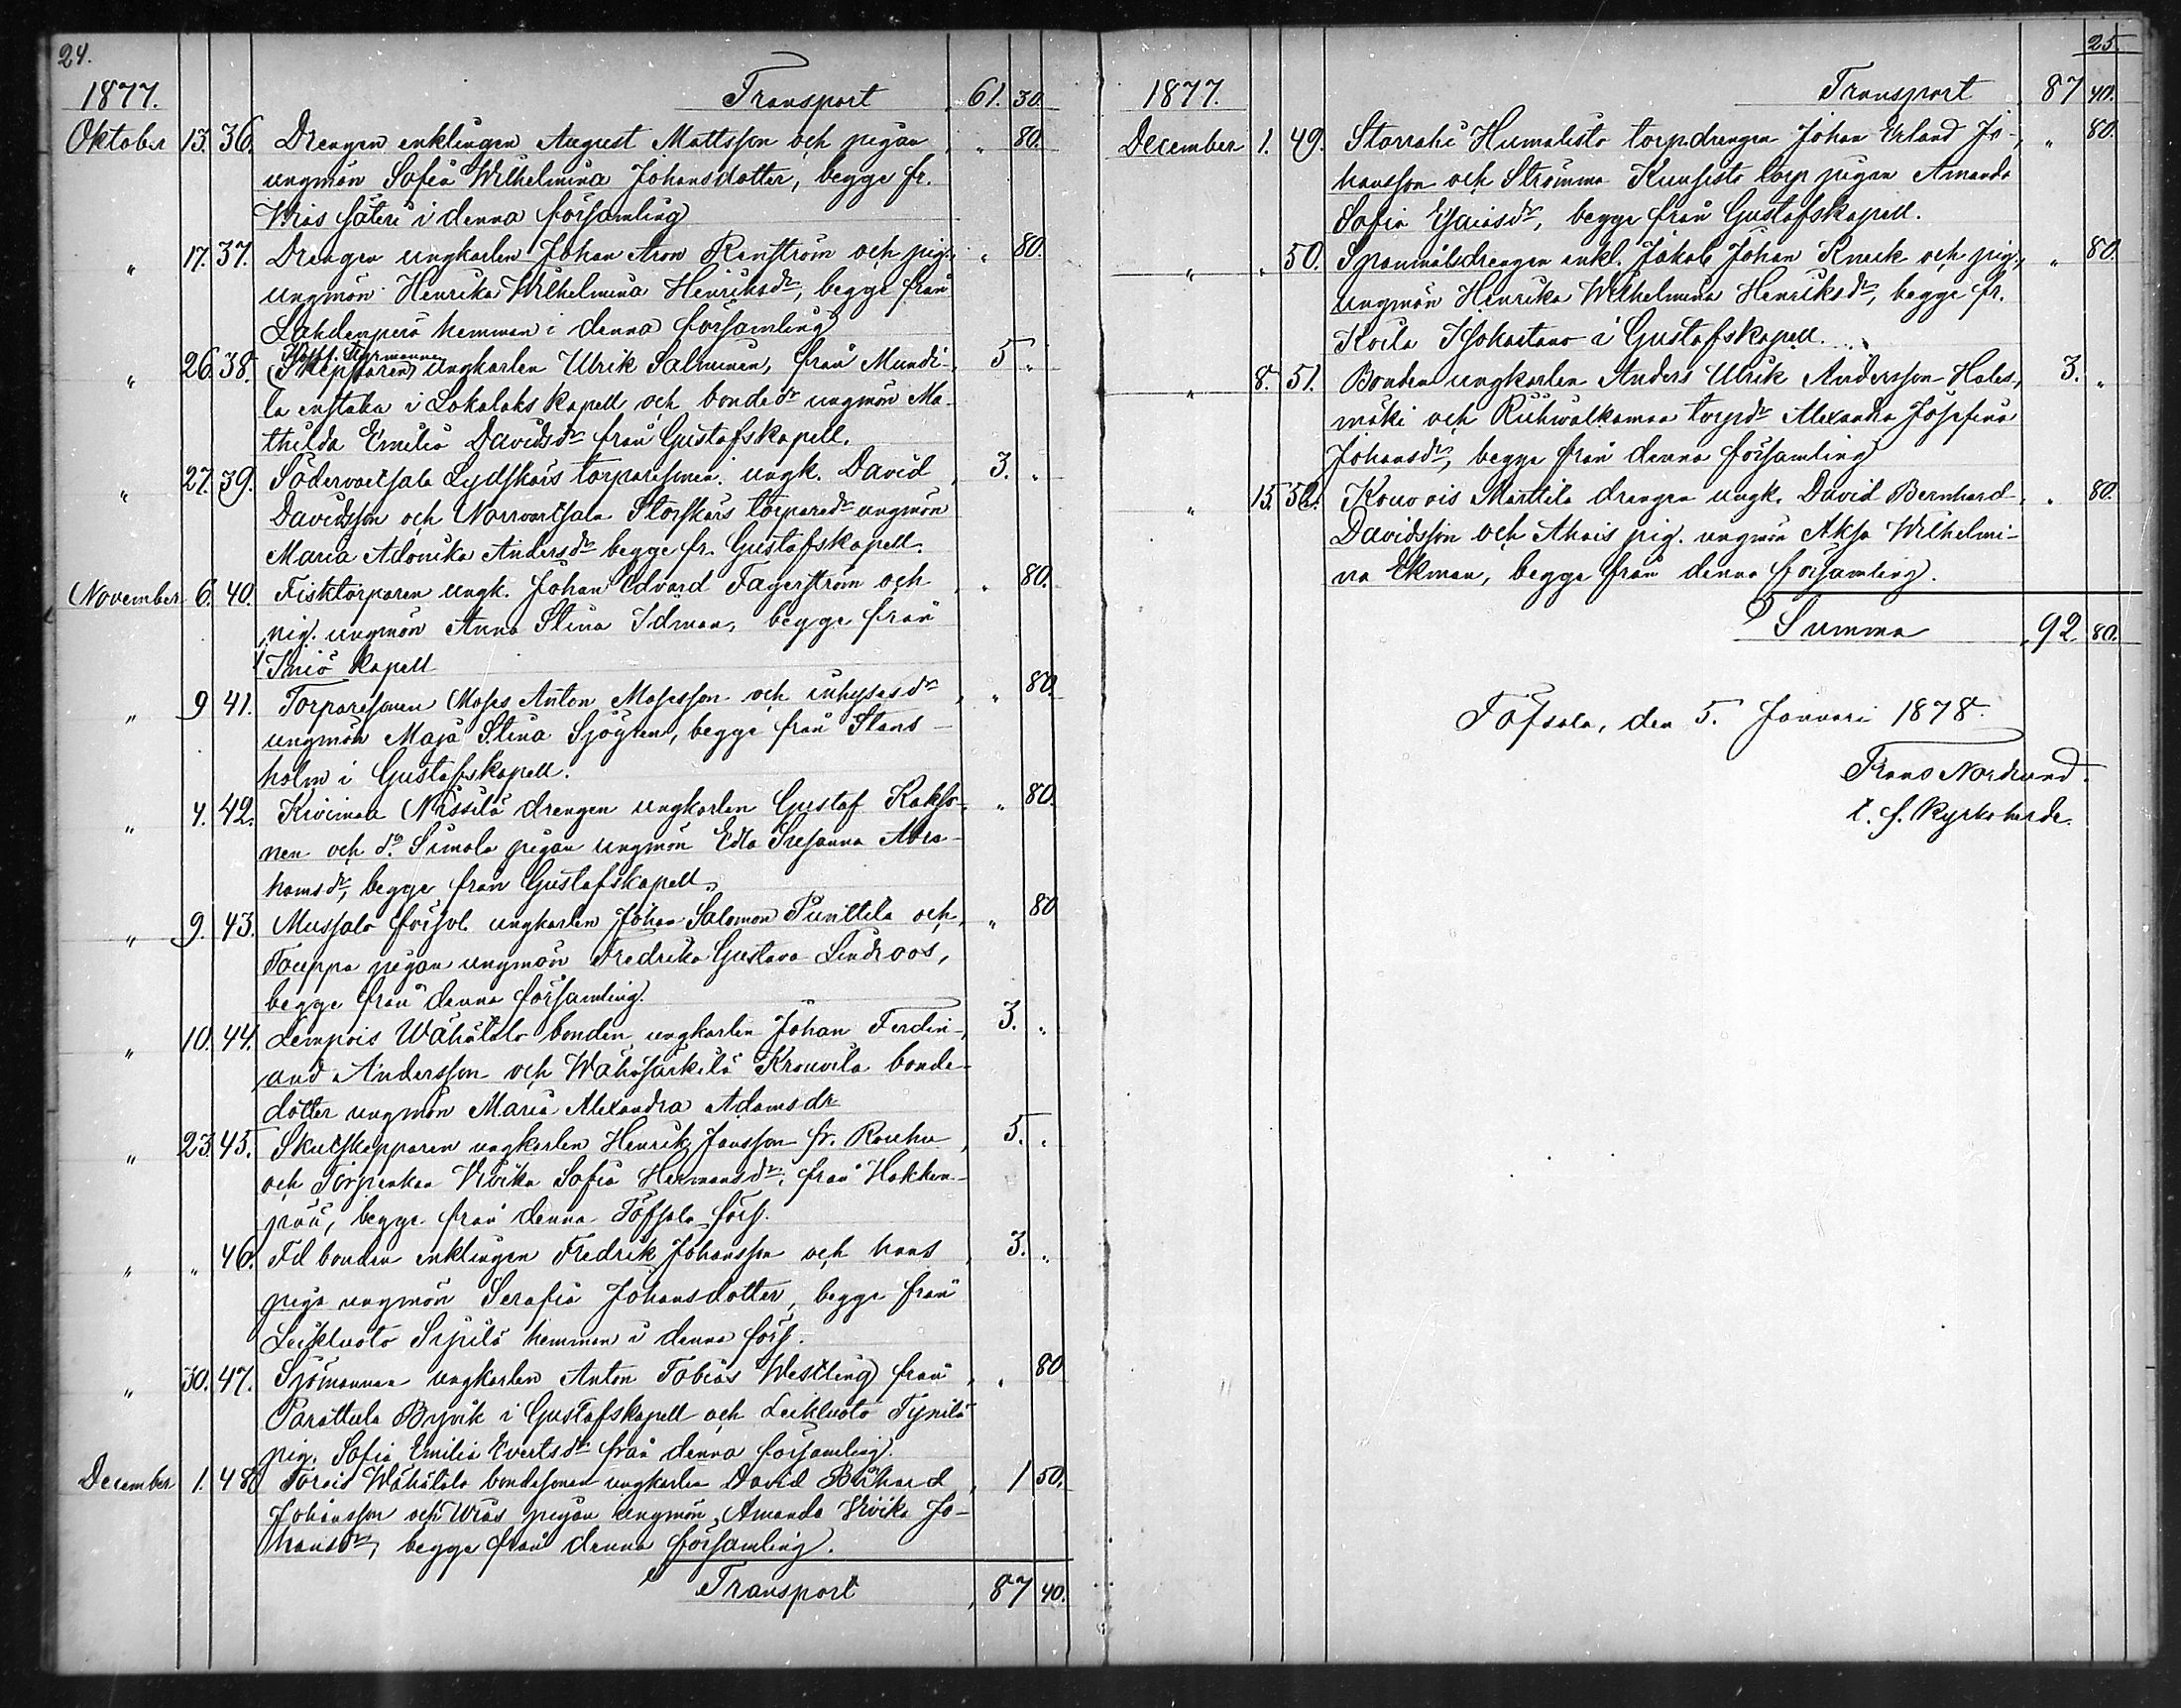 24.
1877. Transport 61. 30.
Oktober 13. 36. Drengen enklingen August Mattsson och pigan " 80.
ungmön Sofia Wilhelmina Johansdotter, begge fr.
Wias säteri i denna församling
" 17. 37. Drengen ungkarlen Johan Aron Renström och pig. " 80.
ungmön Henrika Wilhelmina Henriksdr, begge från
Lahdenperä hemman i denna församling
" 26. 38. (Skepparen) ungkarlen Ulrik Salminen, från Mundi- 5 "
la enstaka i Lokalaks kapell och bondedr ungmön Ma-
thilda Emilia Davidsdr från Gustafskapell.
" 27. 39. Södervartsala Lydskärs torparesonen ungk. David 3. "
Davidsson och Norrvartsala Storskärs torparedr ungmön
Maria Adonika Andersdr begge fr. Gustafskapell.
November 6. 40. Fisktorparen ungk. Johan Edvard Fagerström och " 80.
pig. ungmön Anna Stina Idman, begge från
Iniö kapell
" 9 41. Torparesonen Moses Anton Mosesson och inhysesdr " 80.
ungmön Maja Stina Sjögren, begge från Stens-
holm i Gustafskapell.
" 4. 42. Kivimaa Nissilä drengen ungkarlen Gustaf Kakso- " 80.
nen och do Simola pigan ungmön Edla Susanna Abra-
hamsdr, begge från Gustafskapell.
" 9. 43. Mussalo försvl. ungkarlen Johan Salomon Punittila och " 80
Touppa pigan ungmön Fredrika Gustava Lindroos,
begge från denna församling.
" 10. 44. Lempois Wähätalo bonden ungkarlen Johan Ferdin- 3. "
and Andersson och Wähäsärkilä Krouvila bonde-
dotter ungmön Maria Alexandra Adamsdr
" 23. 45. Skutskepparen ungkarlen Henrik Jansson fr. Rouhu 5. "
och Torpenkan Vivika Sofia Hermansdr, från Hakken-
pää, begge från denna Töfsala förs.
" " 46. Fd bonden enklingen Fredrik Johansson och hans 3. "
piga ungmön Serafia Johansdotter, begge från
Leikluoto Sipilä hemman i denna förs.
" 30. 47. Sjömannen ungkarlen Anton Tobias Westling från " 80
Parattula Byvik i Gustafskapell och Leikluoto Tynilä
pig. Sofia Emilia Evertsdr från denna församling.
December 1. 48. Torais Wähätalo bondesonen ungkarlen David Bernhard 1 50.
Johansson och Wias pigan ungmön Amanda Vivika Jo-
hansdr, begge från denna församling.
Transport 87 40.
25.
1877. Transport 87 40.
December 1. 49. Storrahi Humalisto torpdrengen Johan Erland Jo- " 80.
hansson och Strömma Kuusisto torp pigan Amanda
Sofia Esaiasdr, begge från Gustafskapell.
" " 50. Spanmålsdrengen enkl. Jakob Johan Knuk och pig. " 80.
ungmön Henrika Wilhelmina Henriksdr, begge fr.
Koila Isokartano i Gustafskapell.
" 8. 51. Bonden ungkarlen Anders Ulrik Andersson Hales- 3. "
mäki och Rühwalkamaa torpdr Alexandra Josefina
Johansdr, begge från denna församling
" 15. 52. Kouvois Marttila drengen ungk. David Bernhard " 80.
Davidsson och Ahais pig. ungmön Aksa Wilhelmi-
na Ekman, begge från denna församling.
Summa 92 80.
Töfsala, den 5. Januari 1878.
Frans Nordlund.
t. f. Kyrkoherde.